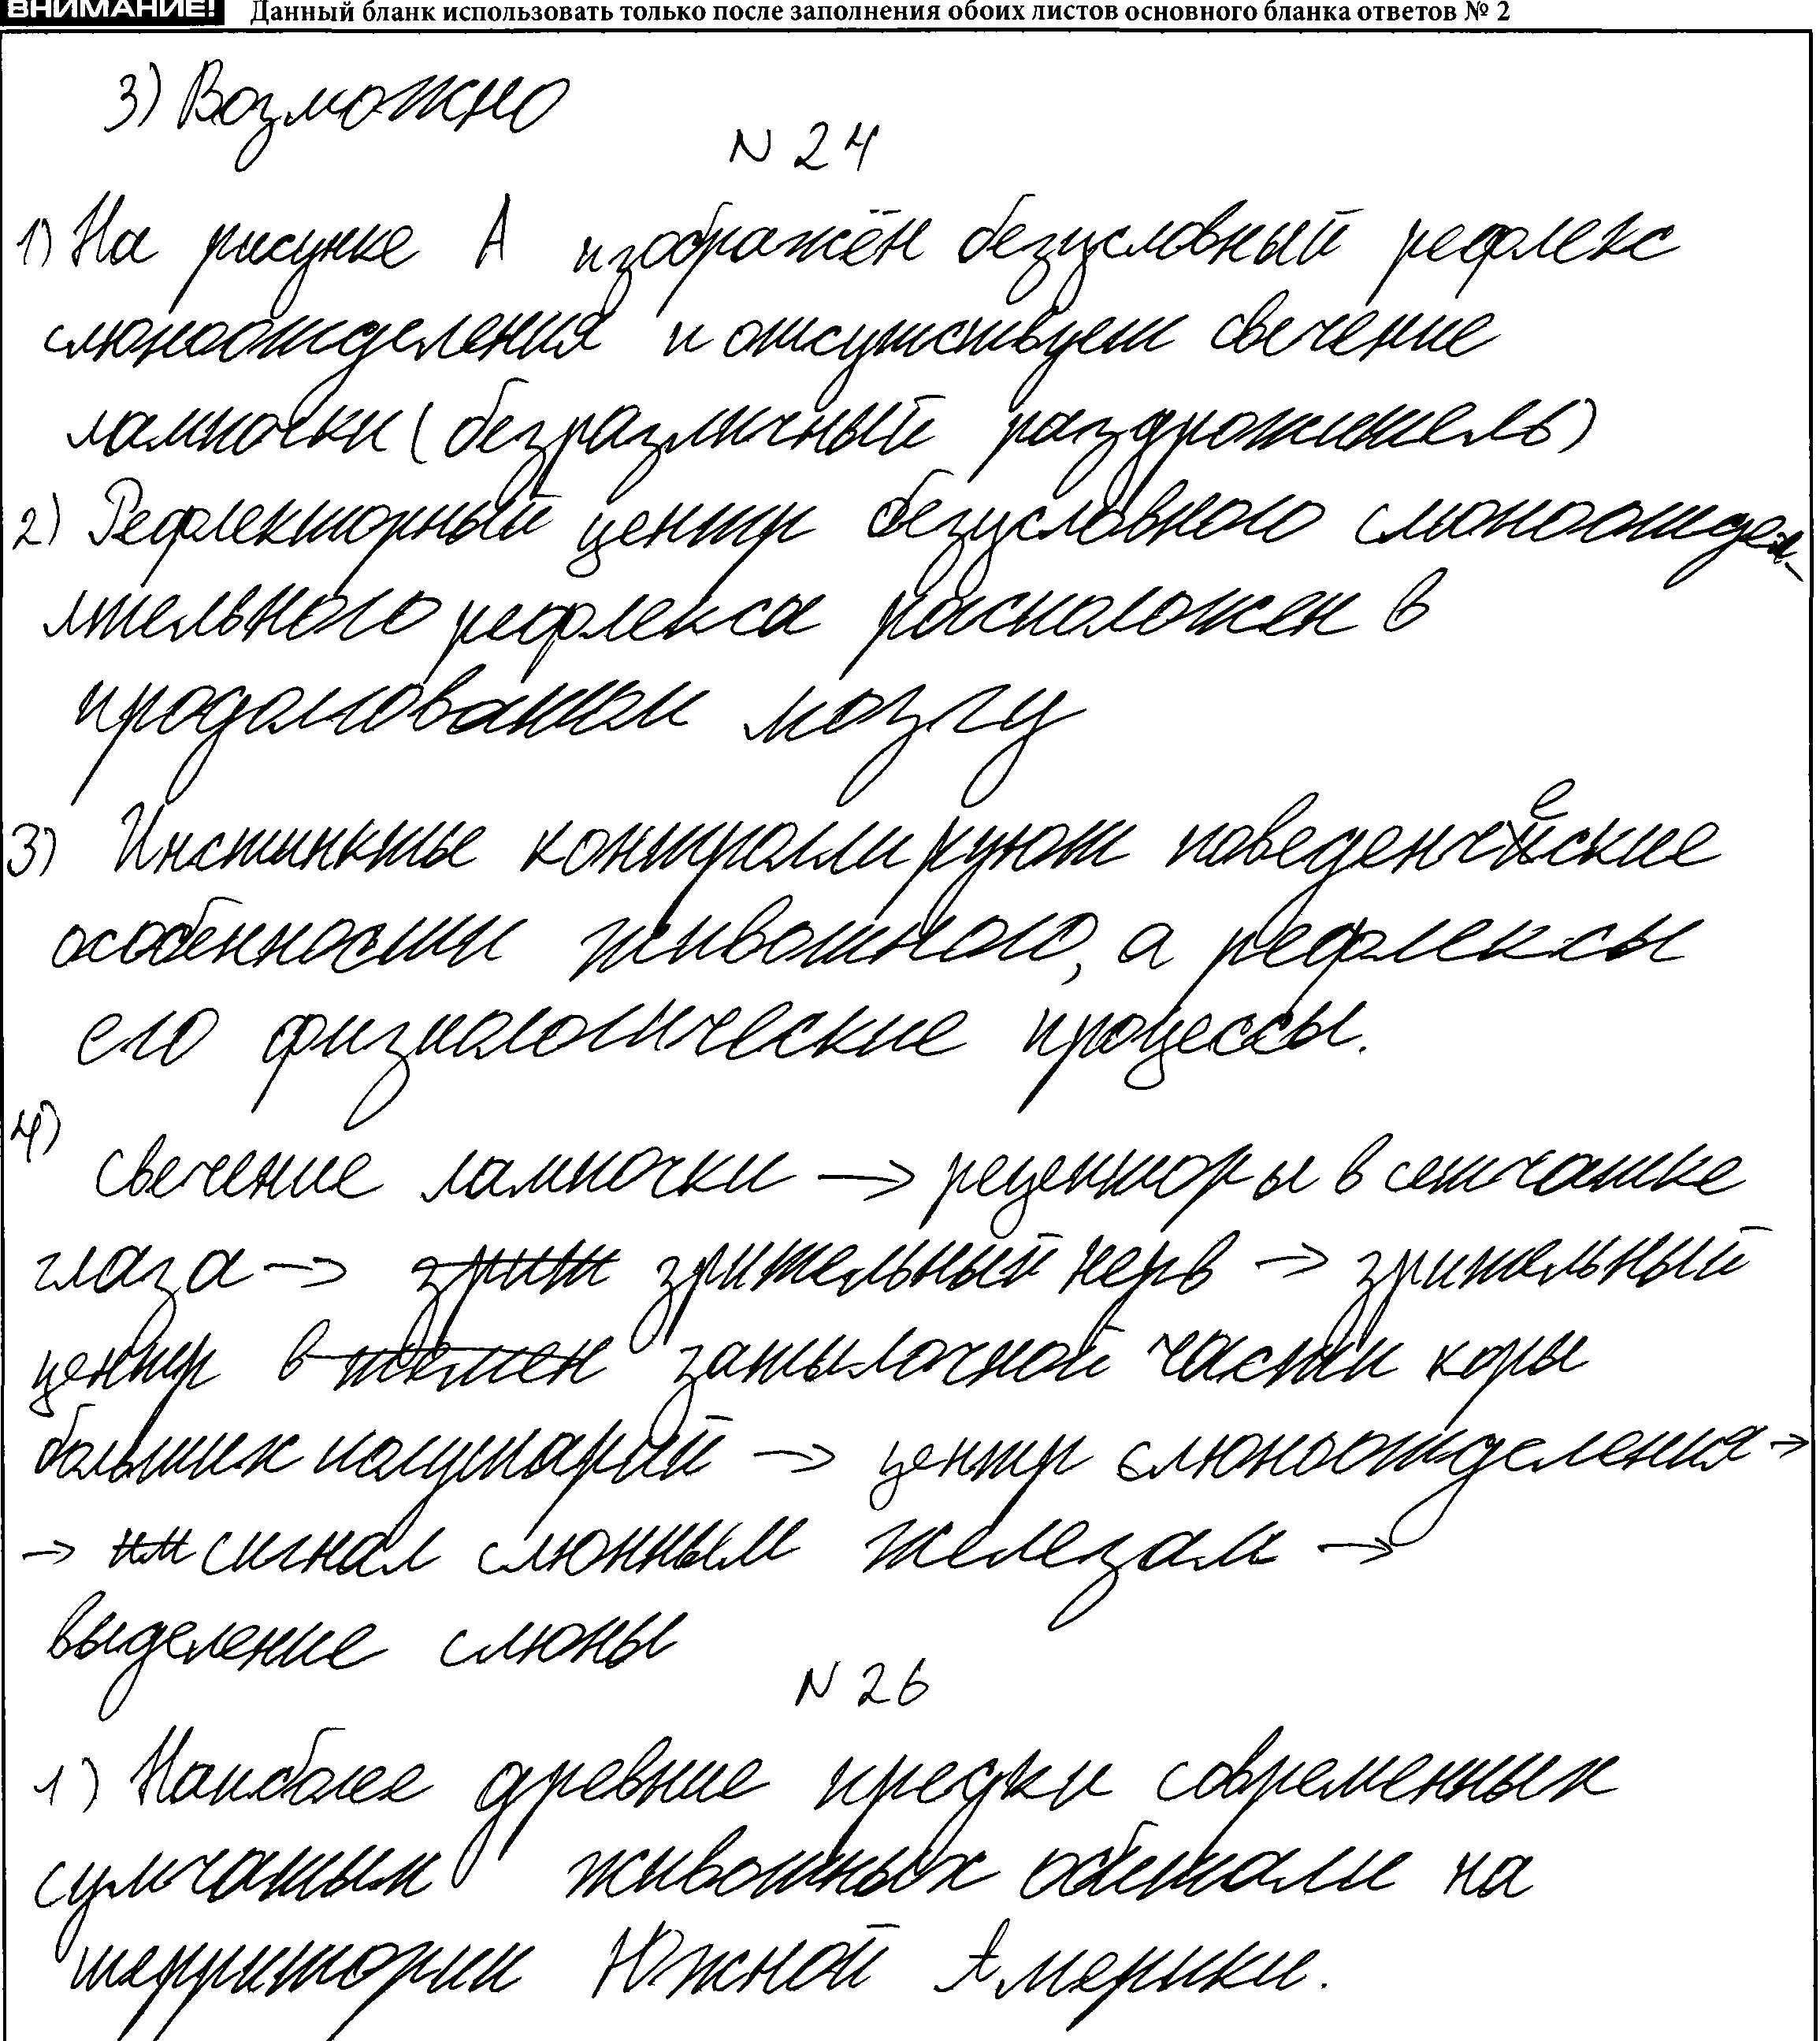 ВНИМАНИЕ! Данный бланк использовать только после заполнения обоих листов основного бланка ответов № 2
3) Возможно
N 24
1) На рисунке А изображён безусловный рефлекс
слюноотделения и отсутствует свечение
лампочки (безразличный раздрожитель)
2) Рефлекторный центр безусловного слюноотдел-
ительного рефлекса расположен в
продолговатом мозгу
3) Инстинкты контроллируют поведенческие
особенности животного, а рефлексы
его физиологические процессы.
4)
свечение лампочки → рецепторы в сетчатке
глаза → зрит зрительный нерв → зрительный
центр в темен затылочной части коры
больших полушарий → центр слюноотделения →
→ им сигнал слюнным железам →
выделение слюны
N 26
1) Наиболее древние предки современных
сумчатых животных обитали на
территории Южной Америки.